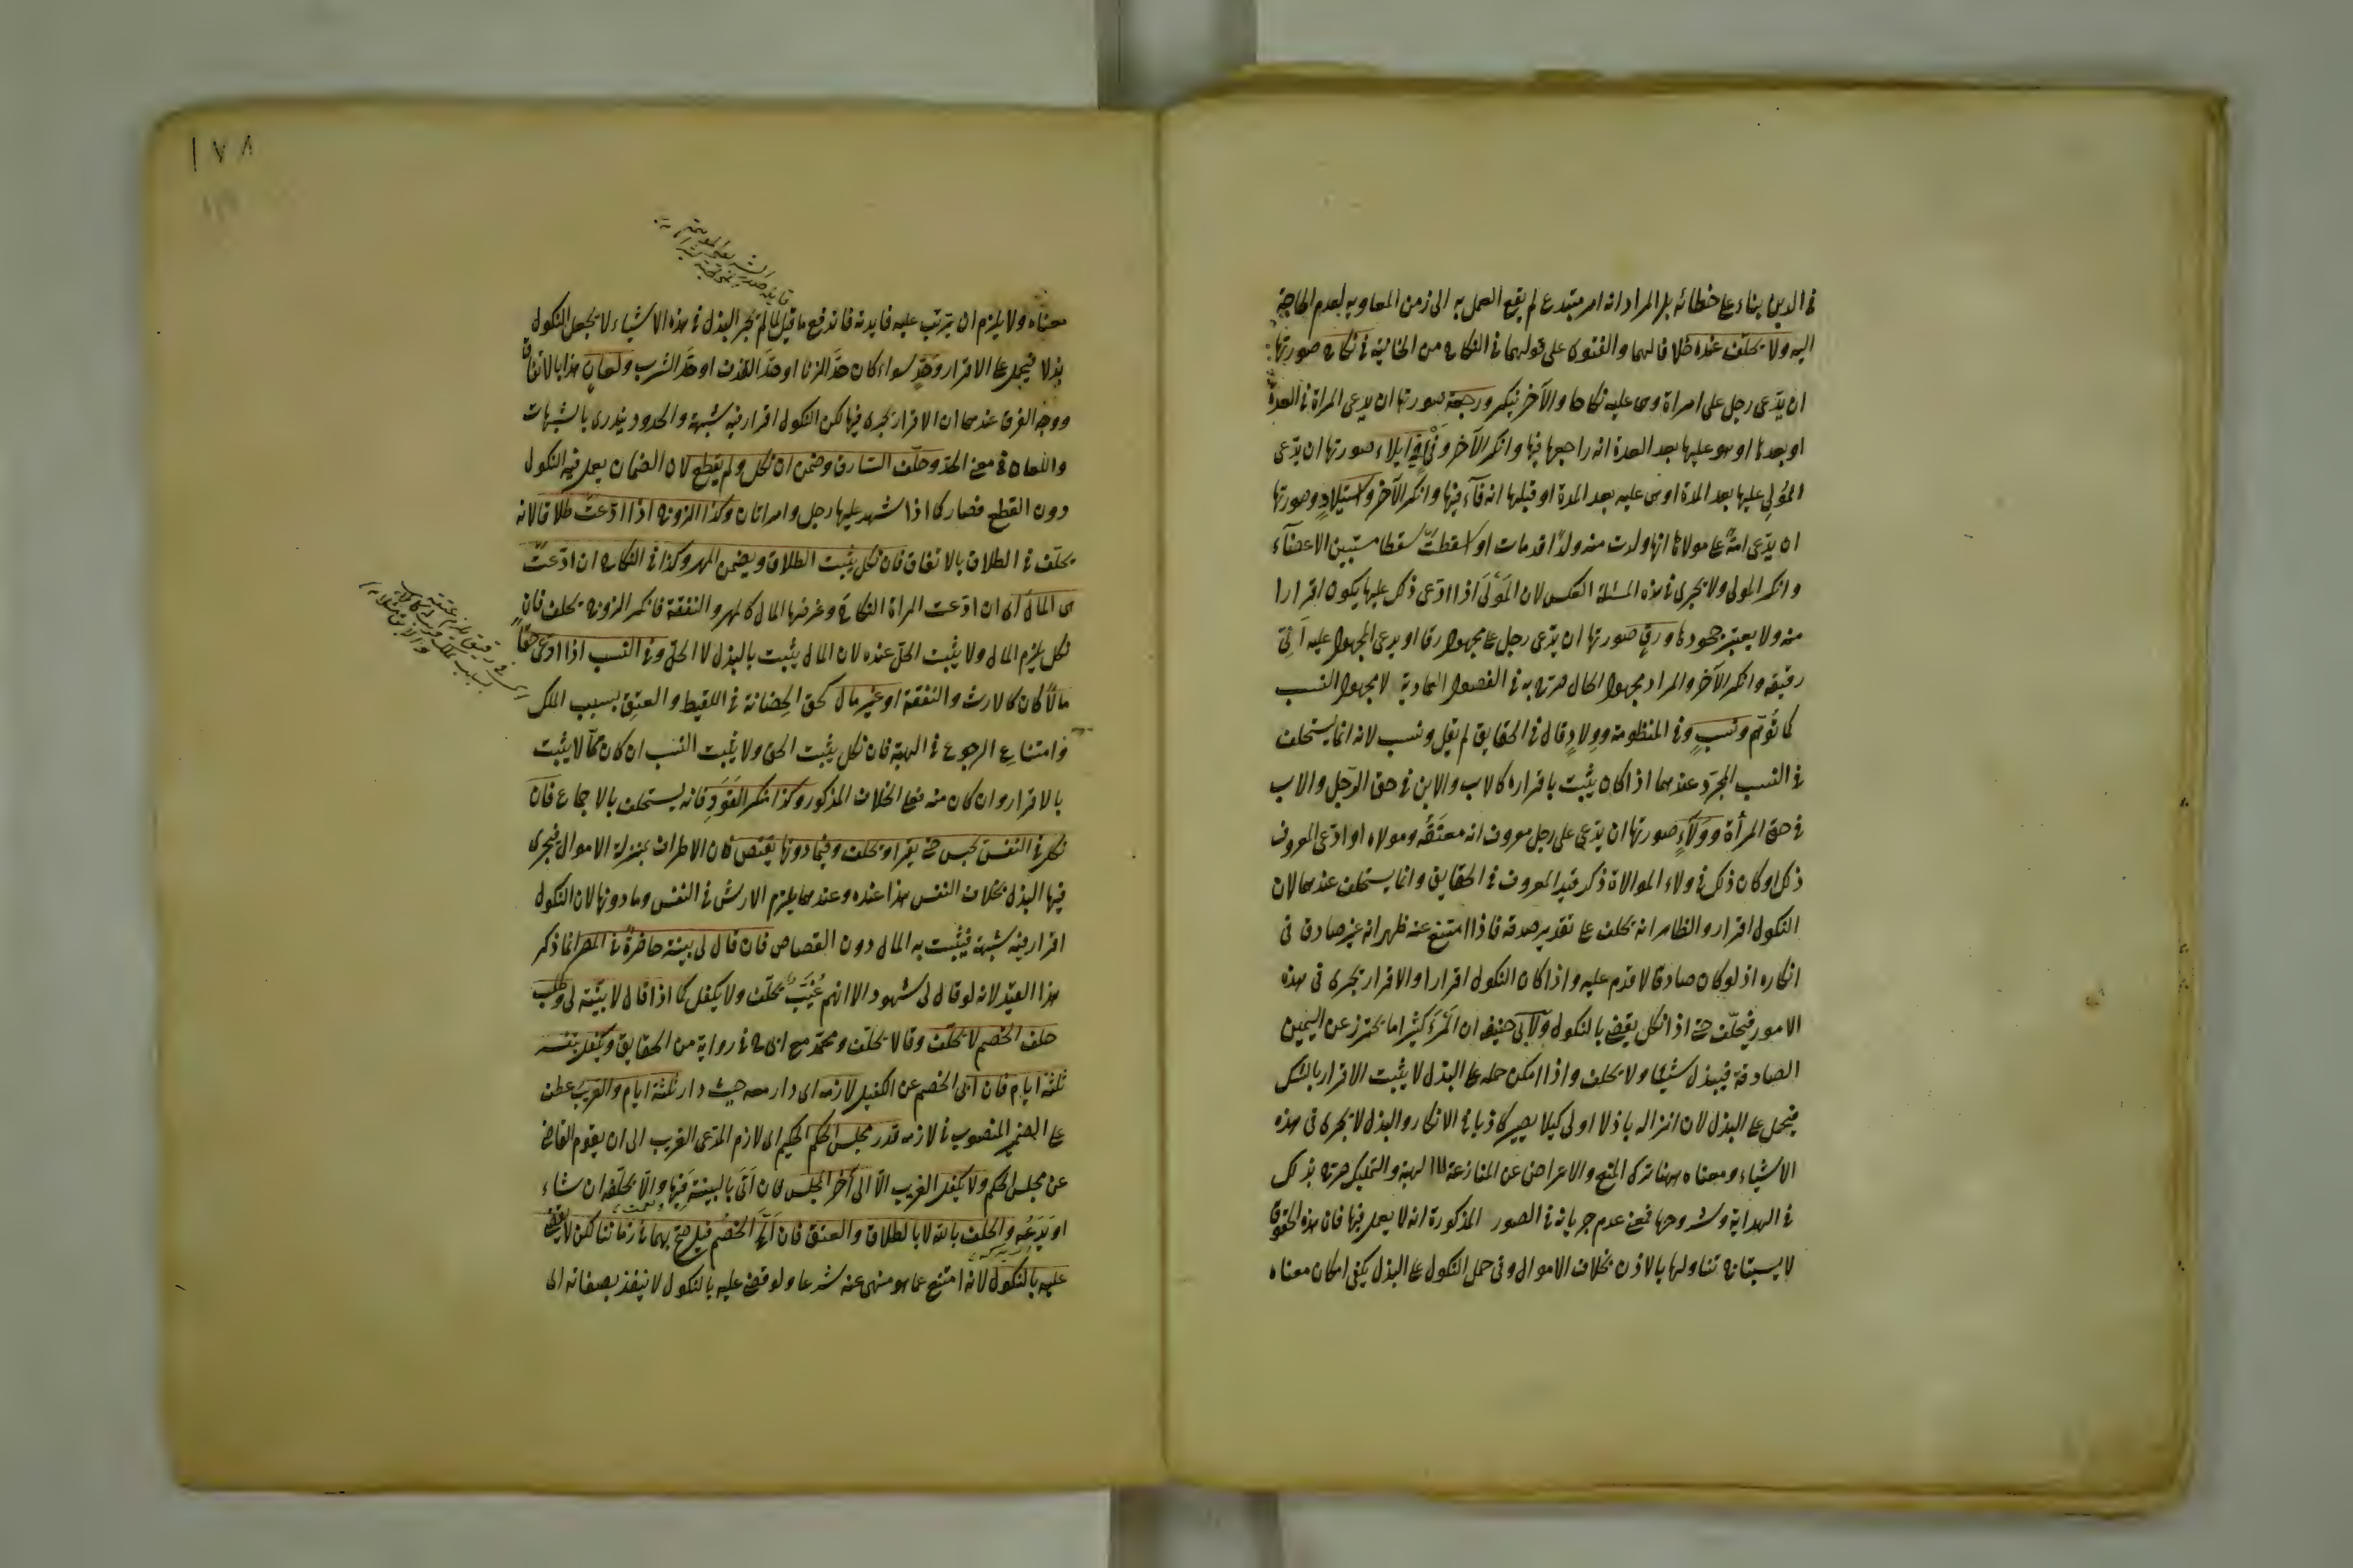 في الدين بناء على خطائه بل المراد انه امر مبتدع لم يقع العمل به الى زمن المعاويه لعدم الحاجة
اليه ولا يحلف عنده خلافا لهما والفتوى على قولهما في النكاح من الخانية في نكاح صورتها
ان يدعى رجل على امراة وهى عليه نكاحا والآخر ينكر ورجعة صورتها ان يدعى المراة في العدة
او بعدها او هو عليها بعد العدة انه راجعها فيها وانكر الآخر وفئ ايلاء صورتها ان يدعى
المولى عليها بعد المدة او هى عليه بعد المدة او قبلها انه فآء فيها وانكر الآخر واستيلاد وصورتها
ان يدعى امة على مولاها انها ولدت منه ولدا قد مات او اسقطت سقطا مستبين الاعضآء
وانكر المولى ولا يجرى في هذه المسئلة العكس لان المولى اذا ادعى ذلك عليها يكون اقرارا
منه ولا يعتبر جحودها ورق صورتها ان يدعى رجل على مجهول رقا او يدعى المجهول عليه
رقيقه وانكر الآخر والمراد مجهول الحال صرح به في الفصول العمادية لا مجهول النسب
كما توهم ونسب وفى المنظومة وولاد قال في الحقايق لم يقل ونسب لانه انما يستحلف
في النسب المجرد عندهما اذا كان يثبت باقراره كالاب والابن في حق الرجل والاب
في حق المرأة وولآء صورتها ان يدعى على رجل معروف انه معتقه ومولاه او ادعى المعروف
ذلك او كان ذلك في ولاء الموالاة ذكر قيد المعروف في الحقايق وانما يستحلف عندهما لان
النكول اقرار والظاهر انه يحلف على تقدير صدقه فاذا امتنع عنه ظهر انه غير صادق في
انكاره اذ لو كان صادقا لاقدم عليه واذا كان النكول اقرارا والاقرار يجرى في هذه
الامور فيحلف حتى اذا نكل يقضى بالنكول ولابى حنيفه ان المرء كثيرا ما يحترز عن اليمين
الصادقة فيبذل شيئا ولا يحلف واذا امكن حمله على البذل لا يثبت الاقرار بالشك
فيحمل على البذل لان انزاله باذلا اولى كيلا يصير كاذبا في الانكار والبذل لا يجرى في هذه
الاشياء ومعناه ههنا ترك المنع والاعراض عن المنازعة لا الهبة والتمليك صرح بذلك
في الهداية وشروحها فمعنى عدم جريانه في الصور المذكورة انه لا يعمل فيها فان هذه الحقوق
لا يستباح تناولها بالاذن بخلاف الاموال وفى حمل النكول على البذل يكفى امكان معناه
١٧٨
معناه ولا يلزم ان يترتب عليه فايدته فاندفع ما قيل لما لم يجر البذل في هذه الاشياء لا يجعل النكول
بذلا فيحمل على الاقرار وحد سواء كان حد الزنا او حد القذف او حد الشرب ولعان هذا بالاتفاق
ووجه الفرق عندهما ان الاقرار يجرى فيها لكن النكول اقرار فيه شبهة والحدود يندرى بالشبهات
واللعان في معنى الحد وحلف السارق وضمن ان نكل ولم يقطع لان الضمان يعمل فيه النكول
دون القطع فصار كما اذا شهد عليها رجل وامراتان وكذا الزوج اذا ادعت طلاقا لانه
يحلف في الطلاق بالاتفاق فان نكل يثبت الطلاق ويضمن المهر وكذا في النكاح ان ادعت
هى المال اى ان ادعت المراة النكاح وغرضها المال كالمهر والنفقة فانكر الزوج يحلف فان
نكل يلزم المال ولا يثبت الحل عنده لان المال يثبت بالبذل لا الحل وفى النسب اذا ادعى حقا
مالا كان كالارث والنفقة او غير مال كحق الحضانة في اللقيط والعتق بسبب الملك
وامتناع الرجوع في الهبة فان نكل يثبت الحق ولا يثبت النسب ان كان مما لا يثبت
بالاقرار وان كان منه فعلى الخلاف المذكور وكذا منكر القود فانه يستحلف بالاجماع فان
نكل في النفس حبس حتى يقر او يحلف وفيما دونها يقتص فان الاطراف بمنزلة الاموال فيجرى
فيها البذل بخلاف النفس هذا عنده وعندهما يلزم الارش في النفس وما دونها لان النكول
اقرار فيه شبهة فيثبت به المال دون القصاص فان قال لى بينة حاضرة في المصر انما ذكر
هذا القيد لانه لو قال لى شهود الا انهم غيب يحلف ولا يكفل كما اذا قال لا بينة لى وطلب
حلف الخصم لا يحلف وقالا يحلف ومحمد مع ابى ح في رواية من الحقايق ويكفل بنفسه
ثلثة ايام فان ابى الخصم عن الكفيل لازمه اى دار معه حيث دار ثلثة ايام والغريب عطف
على الضمير المنصوب في لازمه قدر مجلس الحكم اى لازم المدعى الغريب الى ان يقوم القاضى
عن مجلس الحكم ولا يكفل الغريب الا الى آخر المجلس فان اتى بالبينة فبها والا يحلفه ان شاء
او يدعه والحلف بالله لا بالطلاق والعتق فان الح الخصم قيل صح بهما في زماننا لكن لا يقضى
عليه بالنكول لانه امتنع عما هو منهى عنه شرعا ولو قضى عليه بالنكول لا ينفذ بصفاته اى